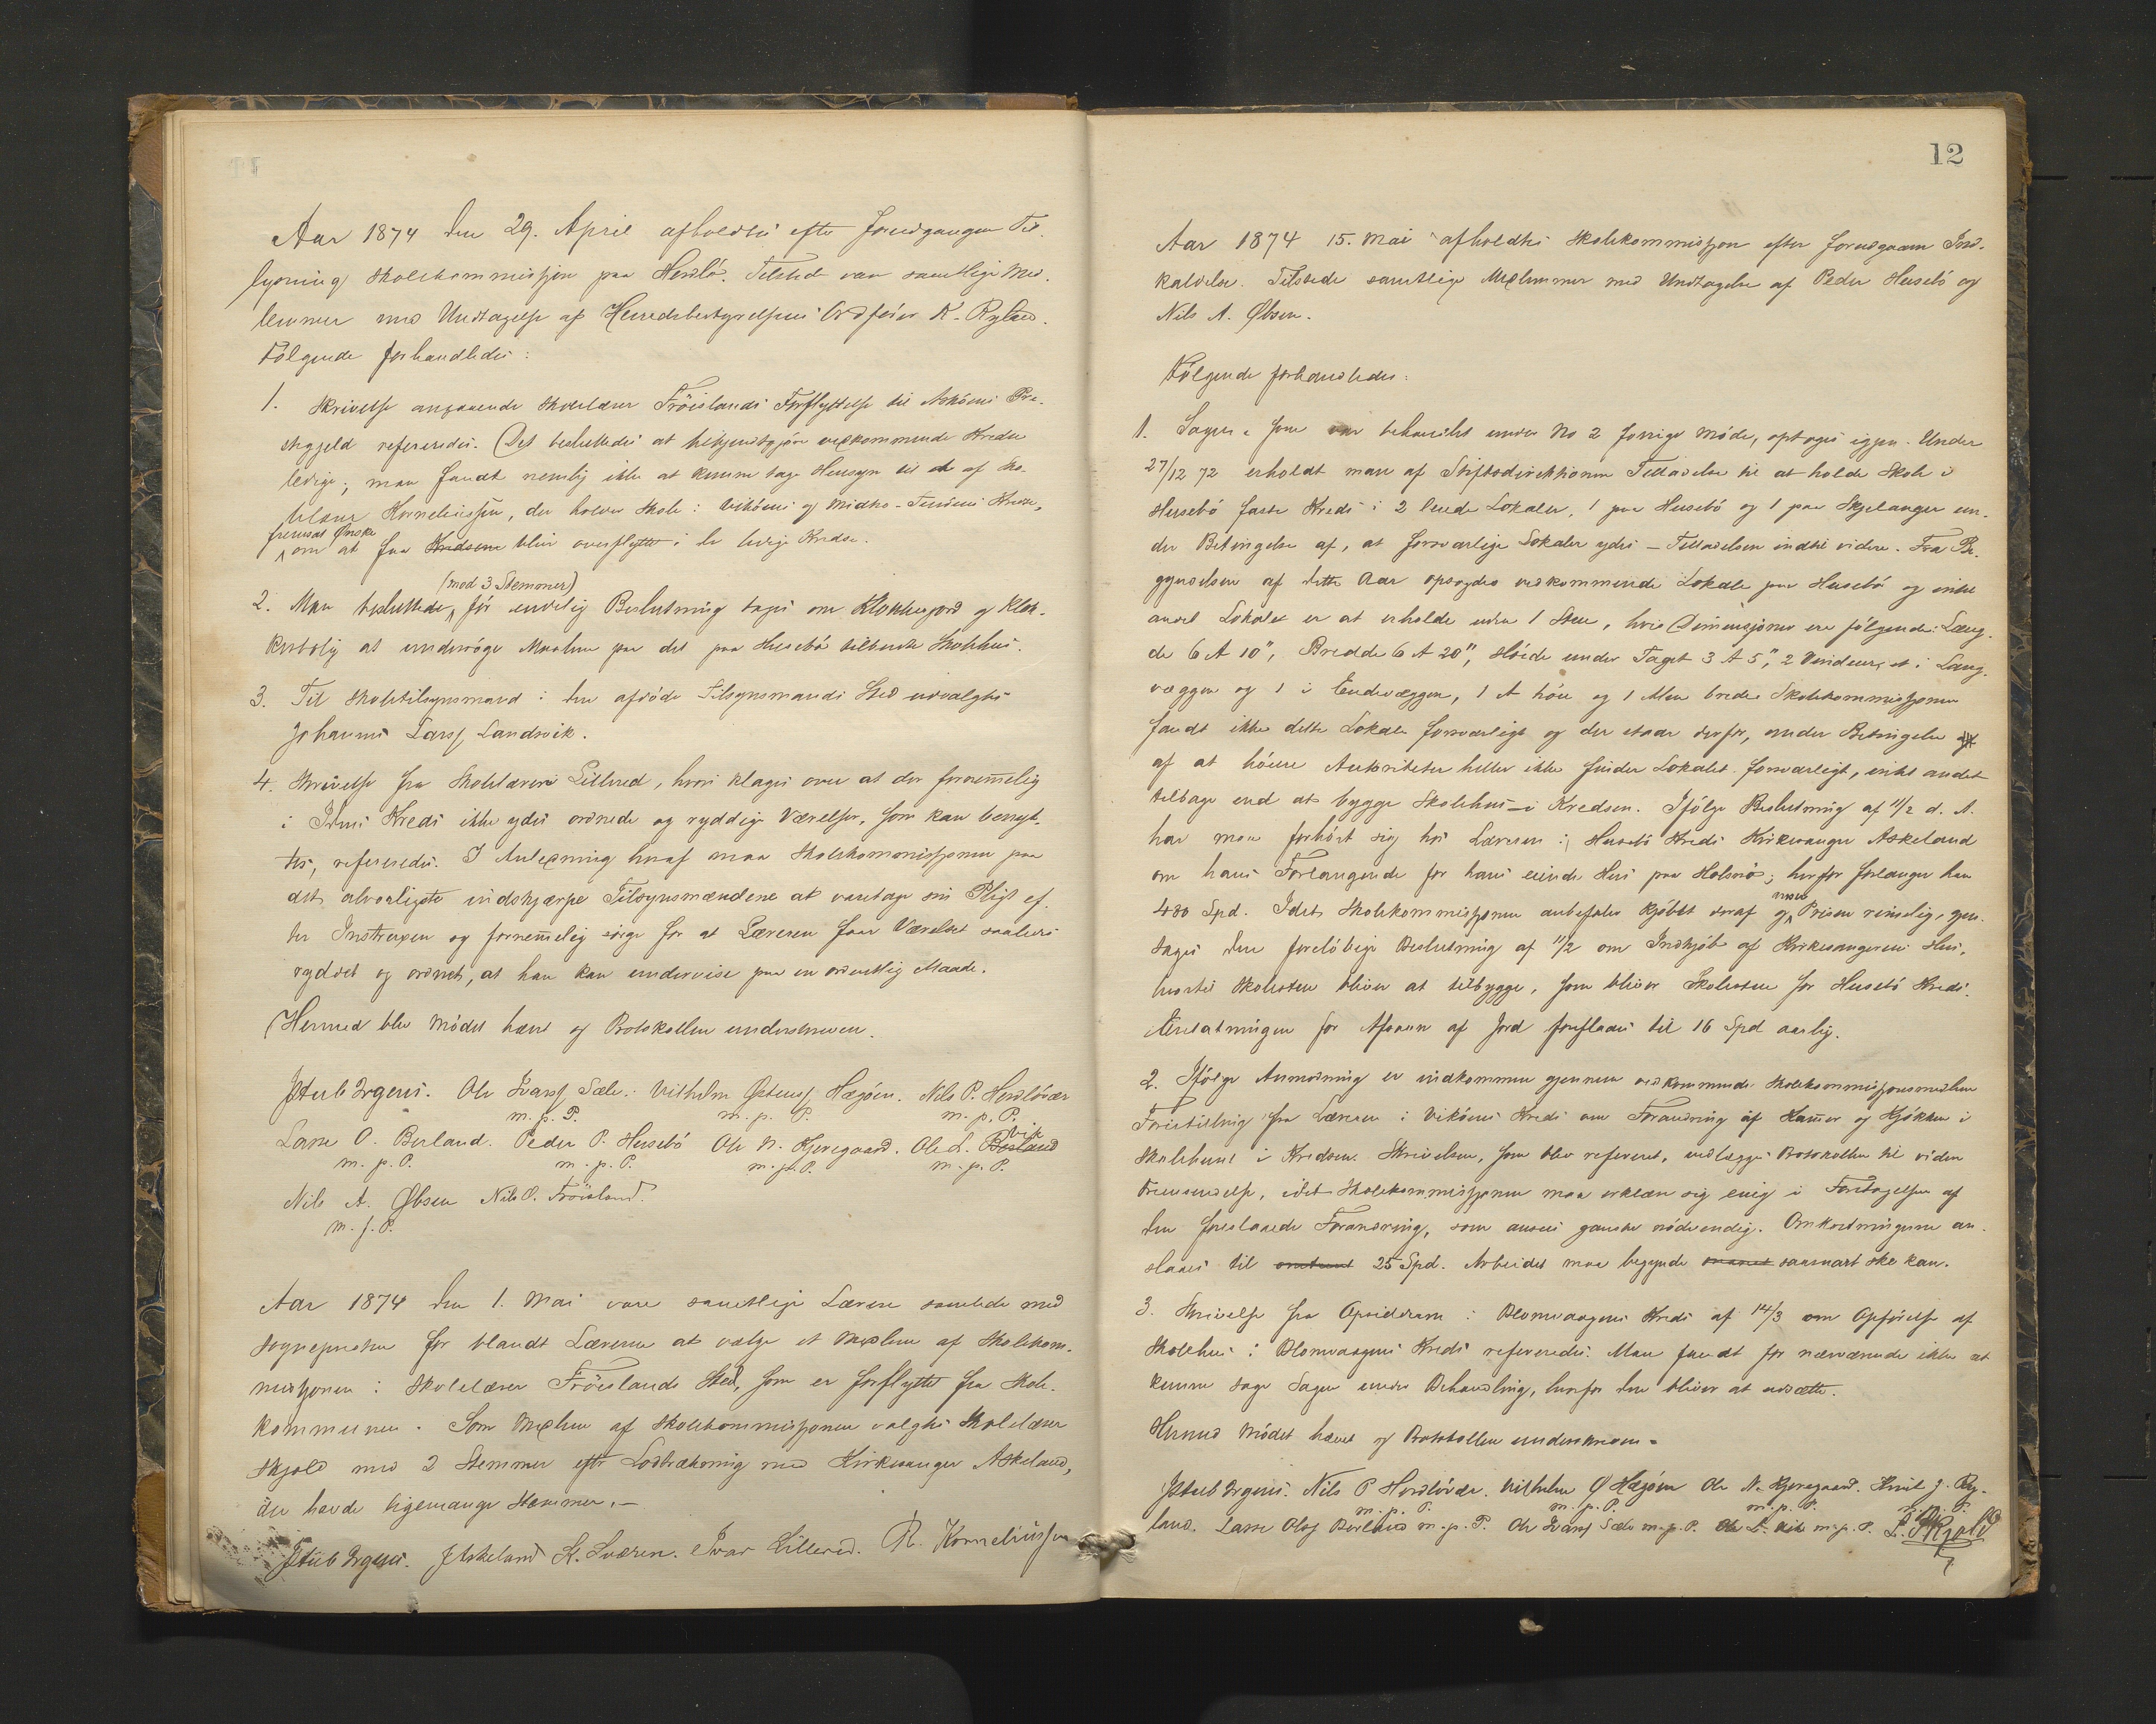 Aar 1874 den 29. April afholdtes efter forudgangen Til-
lysning Skolekommissjon paa Herdlø. Tilstede var samtlige Med-
lemmer med Undtagelse af Herredsbestyrelsens Ordfører K. Ryland.
Følgende forhandledes:
1. Skrivelse angaaende Skolelærer Fröislands Forflyttelse til Askøens Præ-
stegjeld refereredes. Det besluttedes at bekjendtgjøre vedkommende Kredse
ledige; man fandt nemlig ikke at kunne tage Hensyn til de af Sko-
lelærer Korneliussen, der holder Skole i Vikøens og Midtre-Kredse,
fremsat Ønske
om at faa Kredsene blive overflyttet i de ledige Kredse.
(med 3 Stemmer)
2. Man besluttede, før endelig Beslutning tages om Klokkergjord og Klok-
kerbolig at undersøge Marken paa det paa Husebø tilbudte Skolehus.
3. Til Skoletilsynsmand i den afdøde Tilsynsmands Sted udvalgtes
Johannes Larss. Landsvik.
4. Skrivelse fra Skolelærer Lillered, hvori klages over at der fornemmelig
i Kreds ikke ydes ordnede og ryddige Værelser, som kan benyt-
tes, refereredes. I Anledning heraf maa Skolekommissjonen paa
det alvorligste indskjærpe Tilsynsmændene at varetage sin Pligt ef-
ter Instruxen og fornemmelig sørge for at Læreren faar Værelset saaledes
ryddet og ordnet, at han kan undervise paa en ordentlig Maade.
Hermed blev Mødet hævet og Protokollen underskreven.
Jacob Irgens. Ole Ivarss. Sæle. Vilhelm Østenss. Hægøen. Nils P. Herdlövær
m. p. P. m. p. P. m. p. P.
Lasse O. Berland. Peder P. Husebö Ole N. Kjeregaard. Ole L. Berland Vik
m. p. P. m. p. P. m. p. P. m. p. P.
Nils A. Øbsen Nils O. Fröisland.
m. p. P.
Aar 1874 den 1. Mai vare samtlige Lærere samlede med
Sognepresten for blandt Lærerne at vælge et Medlem af Skolekom-
missjonen i Skolelærer Fröislands Sted, som er forflyttet fra Skole-
kommunen. Som Medlem af Skolekommissjonen valgtes Skolelærer
Skjold med 2 Stemmer efter Lodtrækning med Kirkesanger Askeland,
der havde ligemange Stemmer.—
Jacob Irgens. J Askeland L. Sværen. Ivar Lillered. R. Korneliussen
12
Aar 1874 15. Mai afholdtes Skolekommissjon efter forudgaaen Ind-
kaldelse. Tilstede samtlige Medlemmer med Undtagelse af Peder Husebö og
Nils A. Øbsen.
Følgende forhandledes:
1. Sagen, som var behandlet under No 2 forrige Møde, optoges igjen. Under
27/12 72 erholdt man af Stiftsdirektionen Tilladelse til at holde Skole i
Husebö faste Kreds i 2 leiede Lokaler, 1 paa Husebö og 1 paa Skjelanger un-
der Betingelse af, at forsvarlige Lokaler ydes — Tilladelsen indtil videre. Fra Be-
gyndelsen af dette Aar opsagdes vedkommende Lokale paa Husebö og intet
andet Lokale er at erholde uden 1 Stue, hvis Dimensjoner ere følgende: Læng-
de 6 A 10", Bredde 6 A 20", Høide under Taget 3 A 5", 2 Vinduer, et i Lang-
væggen og 1 i Endevæggen, 1 A høie og 1 Alen brede. Skolekommissjonen
fandt ikke dette Lokale forsvarligt og der staar derfor, under Betingelse
af at høiere Autoriteter heller ikke finder Lokalet forsvarligt, intet andet
tilbage end at bygge Skolehus i Kredsen. Ifølge Beslutning af 11/2 d. A.
har man forhørt sig hos Læreren i Husebö Kreds Kirkesanger Askeland
om hans Forlangende for hans eiende Hus paa Holsnø; herfor forlanger han
480 Spd. Idet Skolekommissjonen anbefaler Kjøbet heraf og anser Prisen rimelig, gjen-
tages den foreløbige Beslutning af 11/2 om Indkjøb af Kirkesangerens Hus,
hvortil Skolestue bliver at tilbygge, som bliver Skolestue for Husebö Kreds.
Erstatningen for Afsavn af Jord foreslaaes til 16 Spd aarlig.
2. Ifølge Anmodning er indkommen gjennem vedkommende Skolekommissjonsmedlem
Forestilling fra Læreren i Vikøens Kreds om Forandring af Kammer og Kjøkken i
Skolehuset i Kredsen. Skrivelsen, som blev refereret, vedlægges Protokollen til videre
Fremsendelse, idet Skolekommissjonen maa erklære sig enig i Foretagelsen af
den foreslaaede Forandring, som ansees ganske nødvendig. Omkostningerne an-
slaaes til omtrent 25 Spd. Arbeidet maa begynde snarest saasnart ske kan.
3. Skrivelse fra Opsidderne i Blomvaagens Kreds af 14/3 om Opførelse af
Skolehus i Blomvaagens Kreds refereredes. Man fandt for nærværende ikke at
kunne tage Sagen under Behandling, hvorfor den bliver at udsætte.
Hermed Mødet hævet og Protokollen underskreven.
Jacob Irgens. Nils P Herdlövær. Vilhelm Ø Hægøen Ole N. Kjeregaard. Knut J. Ry-
m. p. P. m. p. P. m. p. P. m. p. P.
land. Lasse Olss Berland m. p. P. Ole Ivarss Sæle m. p. P. Ole L. Vik m. p. P. L. Skjold